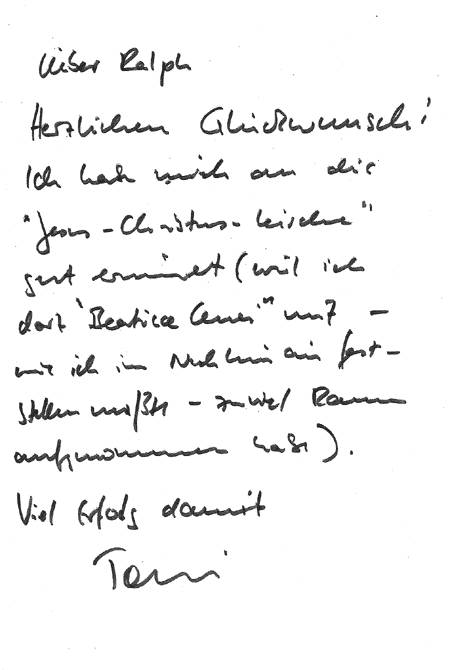 Lieber Ralph
Herzlichen Glückwunsch!
Ich habe mich an die
"Jesus-Christus-Kirche"
gut erinnert (weil ich
dort "Beatrice Cenci" mit –
wie ich im Nachhinein fest-
stellen mußte – zuviel Raum
aufgenommen habe).
Viel Erfolg damit